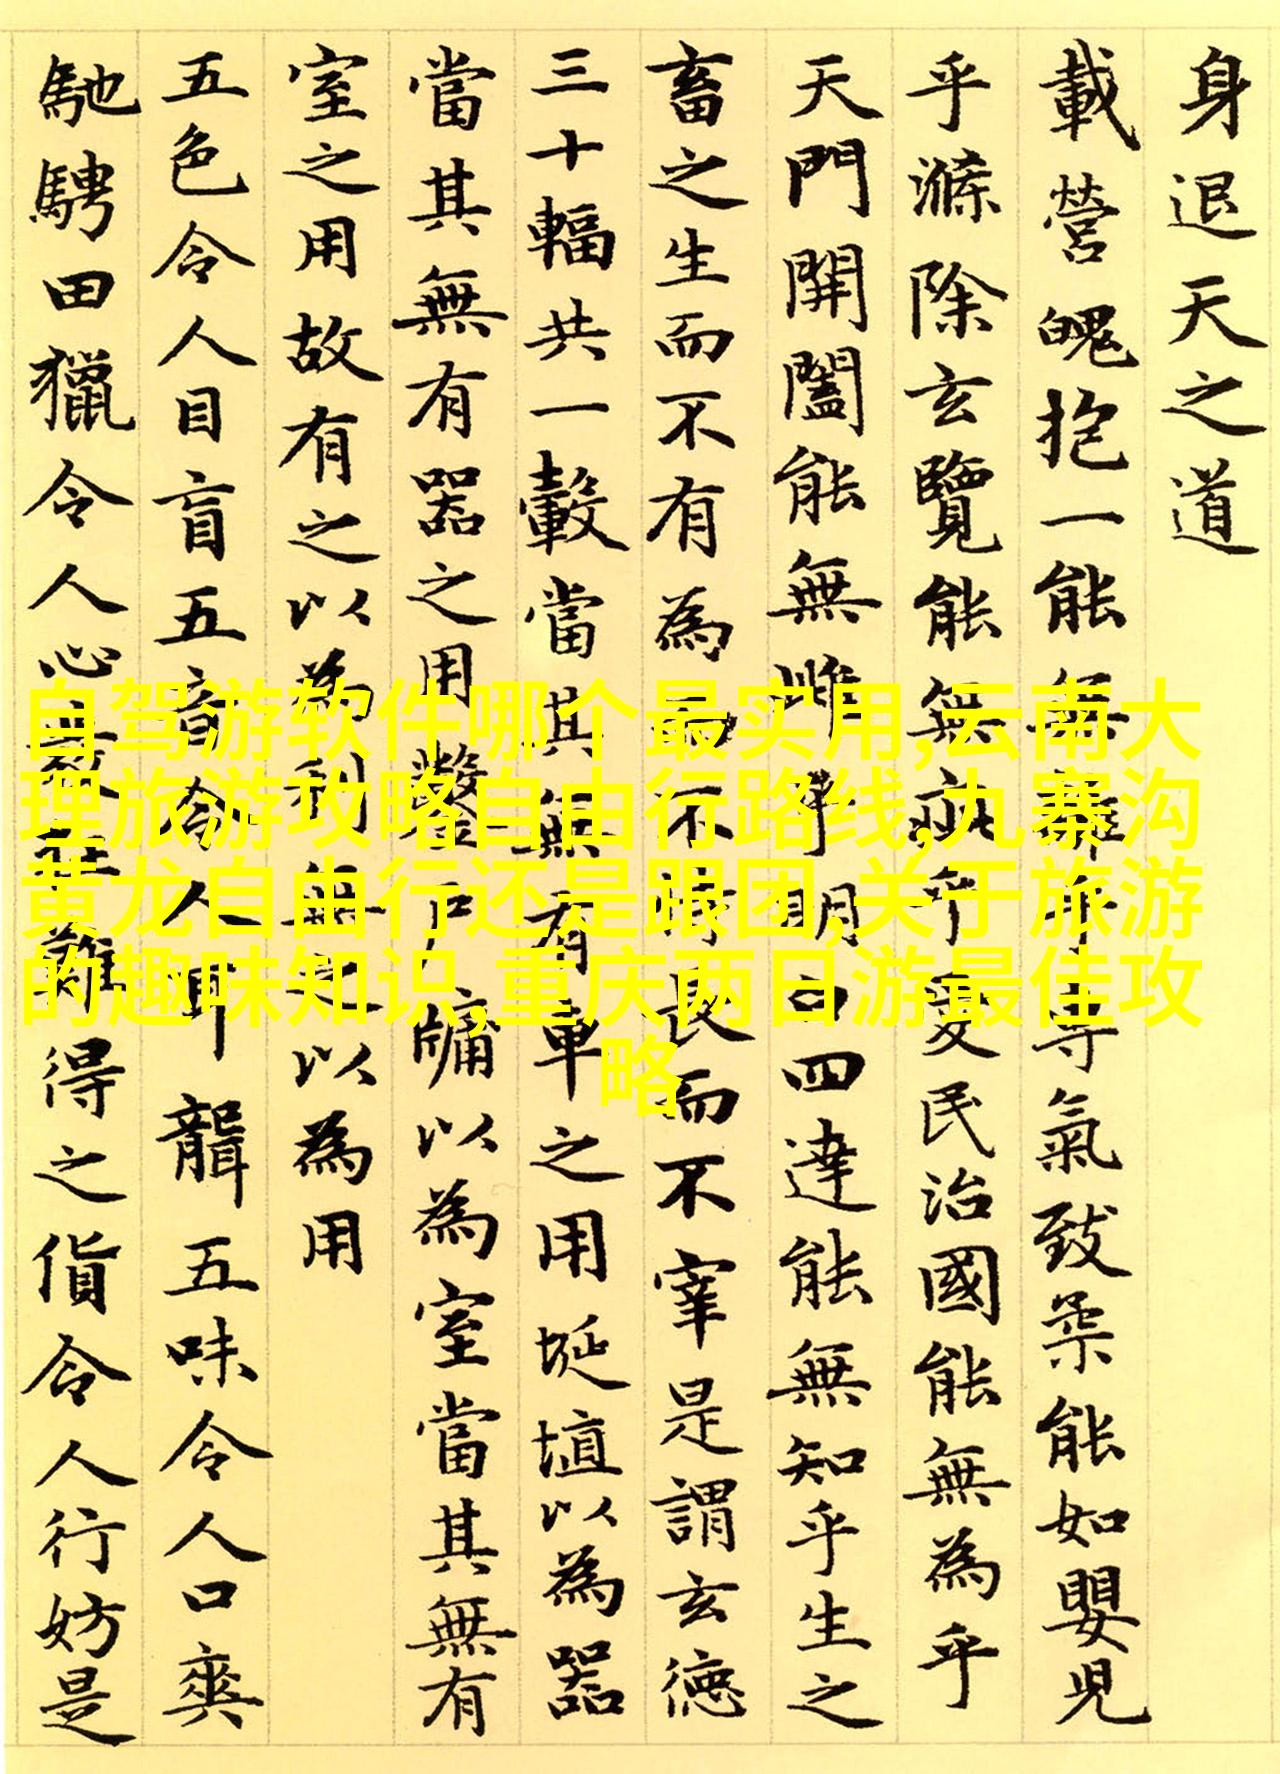 身退天之道
載營魄抱一能無離乎専氣致柔能如嬰児
乎滌除玄覽能無疵乎愛民治國能無為乎
天門開闔能無雌乎明白四達能無知乎生之
畜之生而不有為而不恃長而不宰是謂玄德
三十輻共一轂當其無有車之用埏埴以為器
當其無有器之用鑿戶牖以為室當其無有
室之用故有之以為利無之以為用
五色令人目盲五音令人耳聾五味令人口爽
馳騁田獵令人心發狂難得之貨令人行妨是
自驾游软件哪个最实用,云南大
理旅游攻略自由行路线,九寨沟
黄龙自由行还是跟团,关于旅游
的趣味知识,重庆两日游最佳攻
略